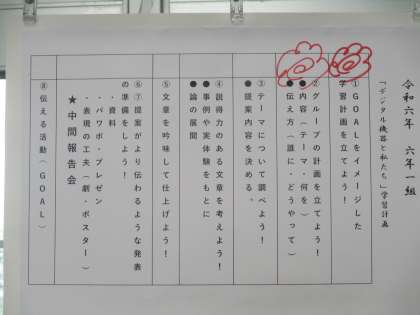 令和六年 六年一組
「デジタル機器と私たち」学習計画
①GOALをイメージした
学習計画を立てよう！
②グループの計画を立てよう！
●内容（テーマ・何を）
●伝え方（誰に・どうやって）
③テーマについて調べよう！
●提案内容を決める。
④説得力のある文章を考えよう！
●事例や実体験をもとに
●論の展開
⑤文章を吟味して仕上げよう！
⑥⑦提案がより伝わるような発表
の準備をしよう！
・資料
・パワポ・プレゼン
・表現の工夫（劇・ポスター）
★中間報告会
⑧伝える活動（GOAL）